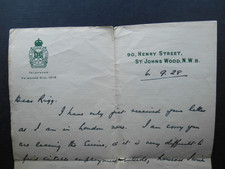 90, HENRY STREET,
ST JOHNS WOOD, N.W.8.
TELEPHONE
6. 9. 28
Dear Rigg.
I have only just received your letter
as I am in London now. I am sorry you
are leaving the Service, as it is very difficult to
find suitable employment